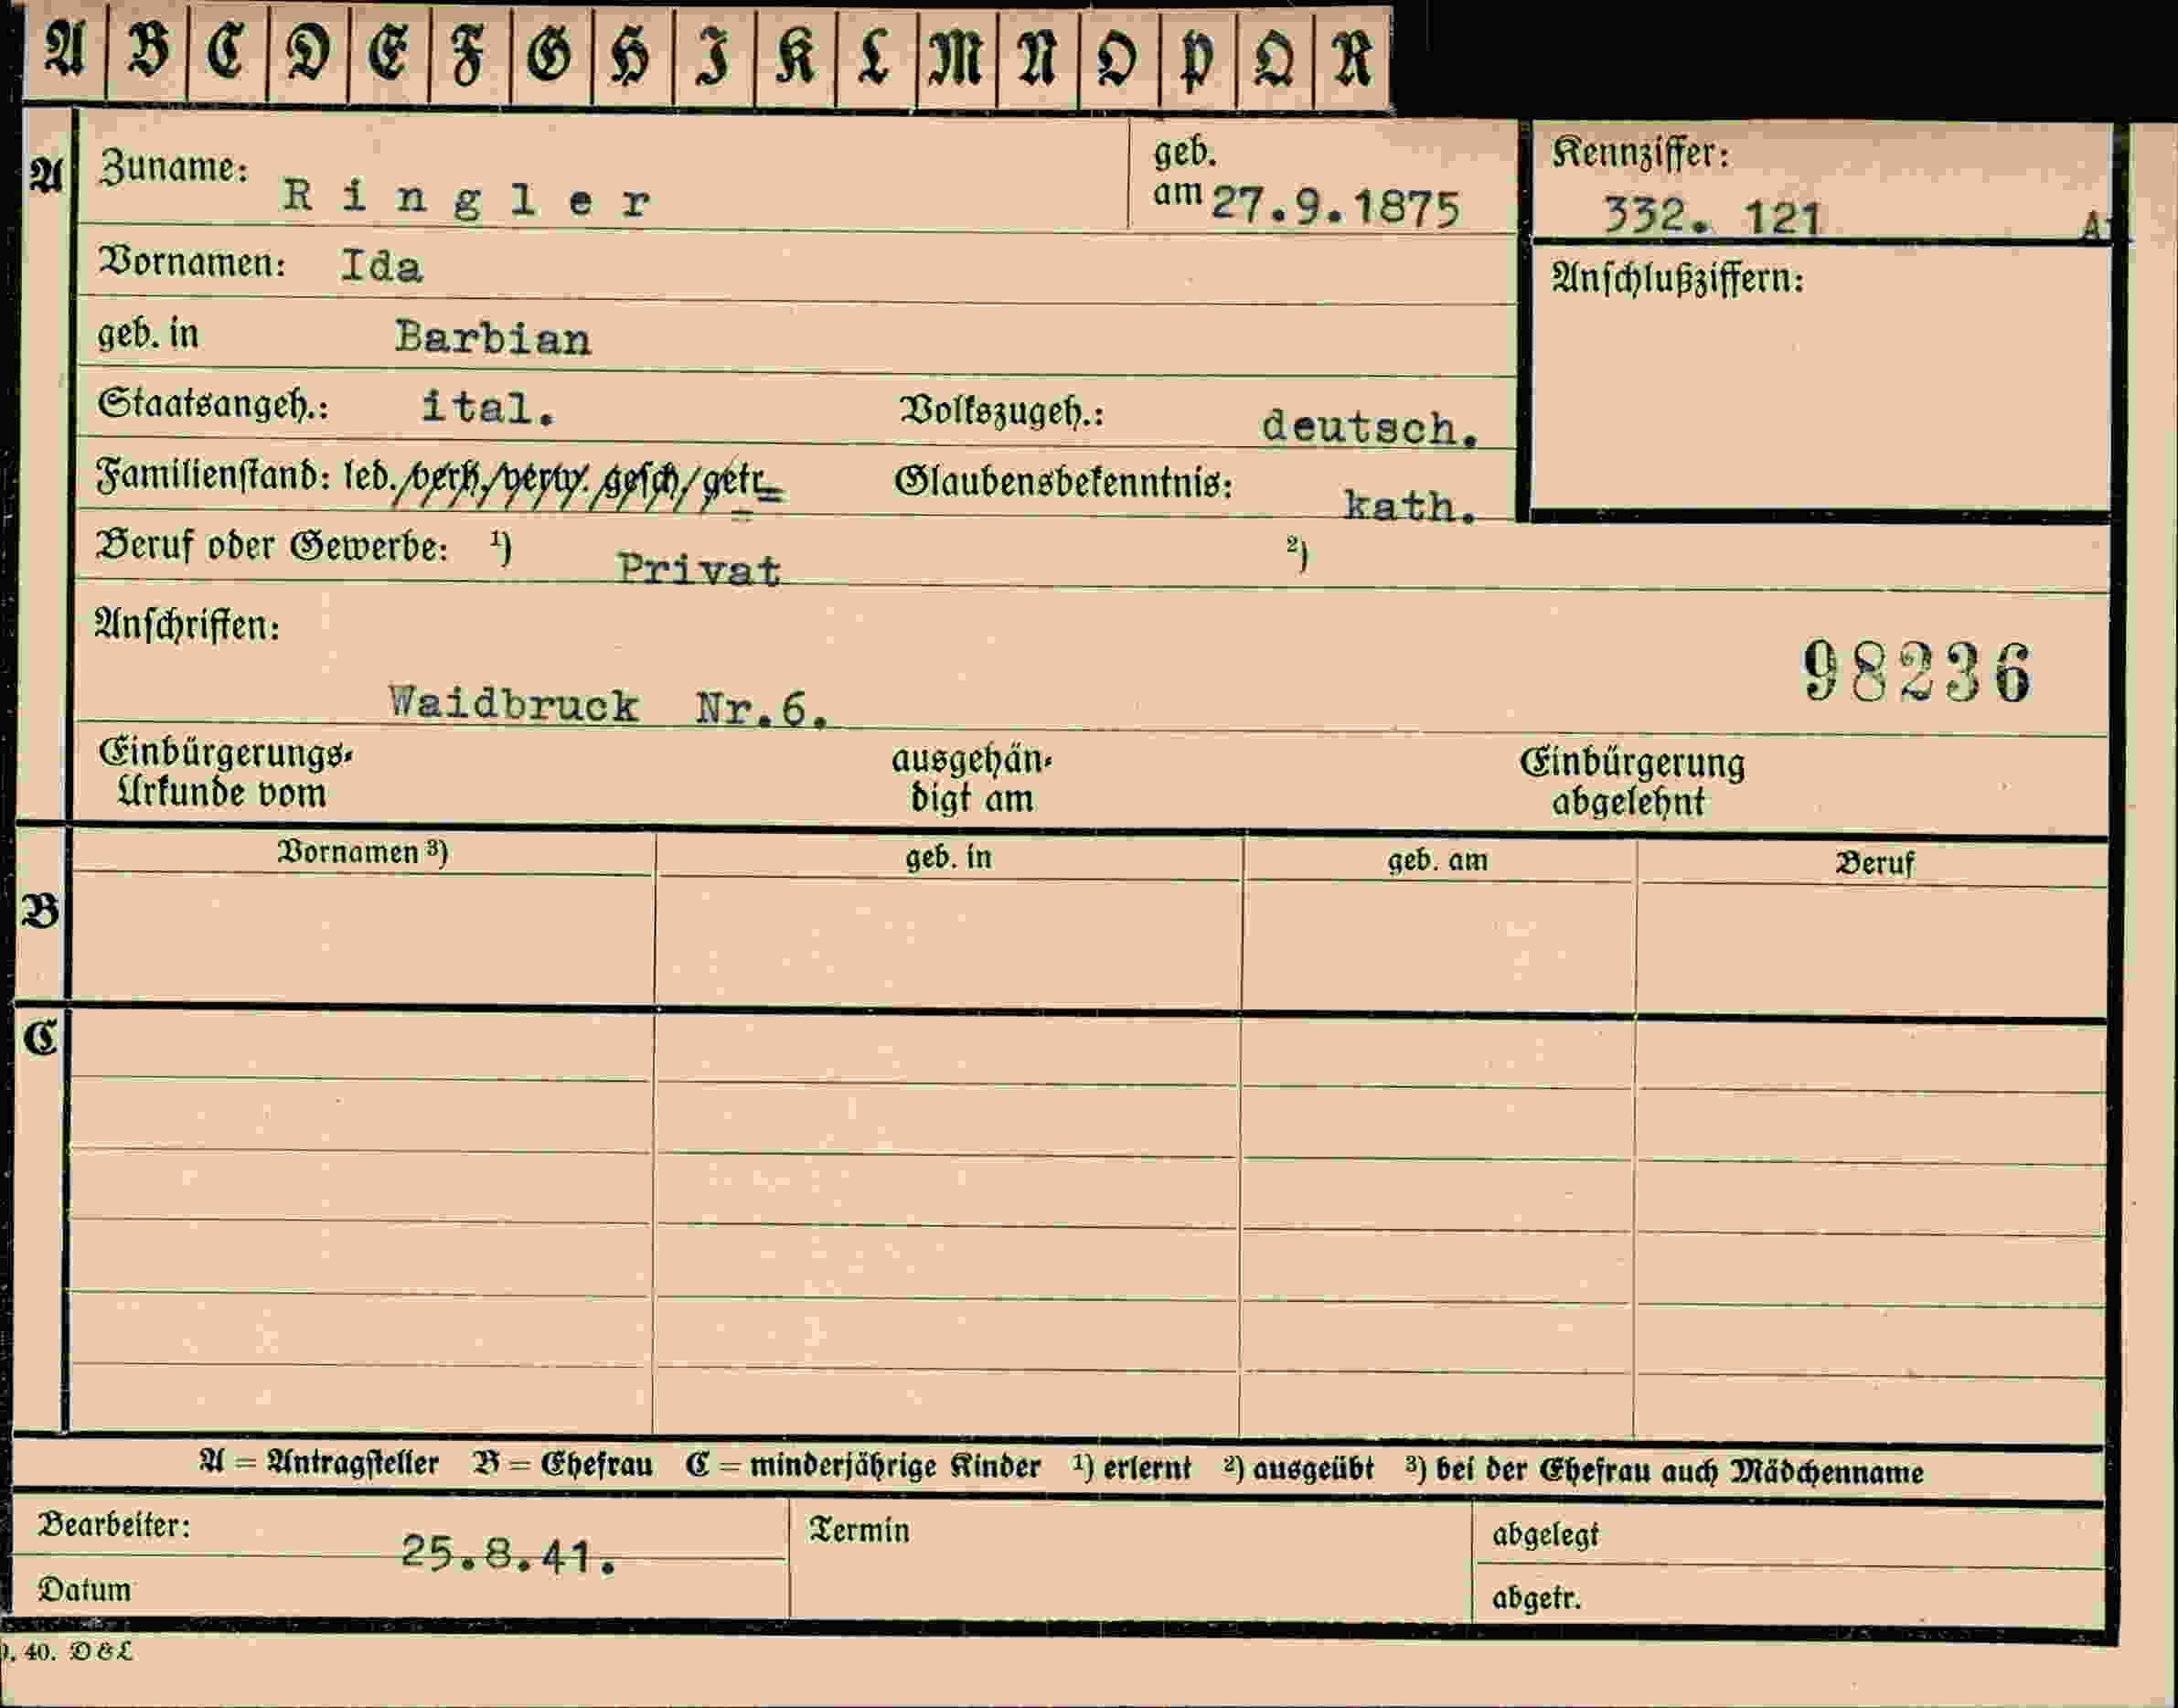 A B C D E F G H I K L M N O P Q R
A Zuname: Ringler geb. am 27.9.1875 Kennziffer: 332. 121
Vornamen: Ida Anschlußziffern:
geb. in Barbian
Staatsangeh.: ital. Volkszugeh.: deutsch.
Familienstand: led./verh./verw. gesch/getr. Glaubensbekenntnis: kath.
Beruf oder Gewerbe: ¹) Privat ²)
Anschriften:
98236
Waidbruck Nr.6.
Einbürgerungs- ausgehän- Einbürgerung
Urkunde vom digt am abgelehnt
Vornamen ³) geb. in geb. am Beruf
B
C
A = Antragsteller B = Ehefrau C = minderjährige Kinder ¹) erlernt ²) ausgeübt ³) bei der Ehefrau auch Mädchenname
Bearbeiter: 25.8.41. Termin abgelegt
Datum abgetr.
. 40. D & L